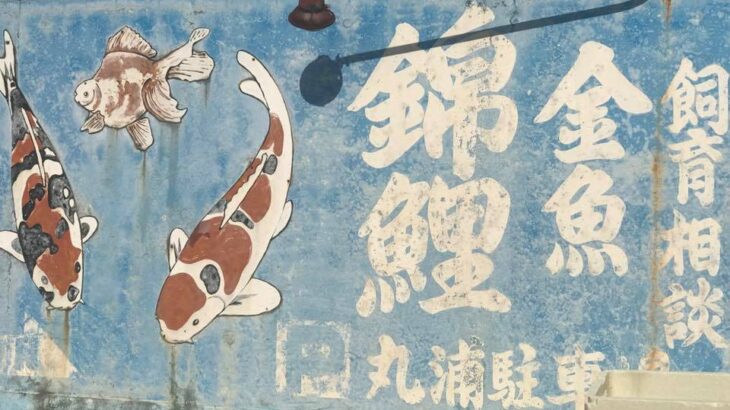 錦鯉
金魚
飼育相談
P
丸浦駐車